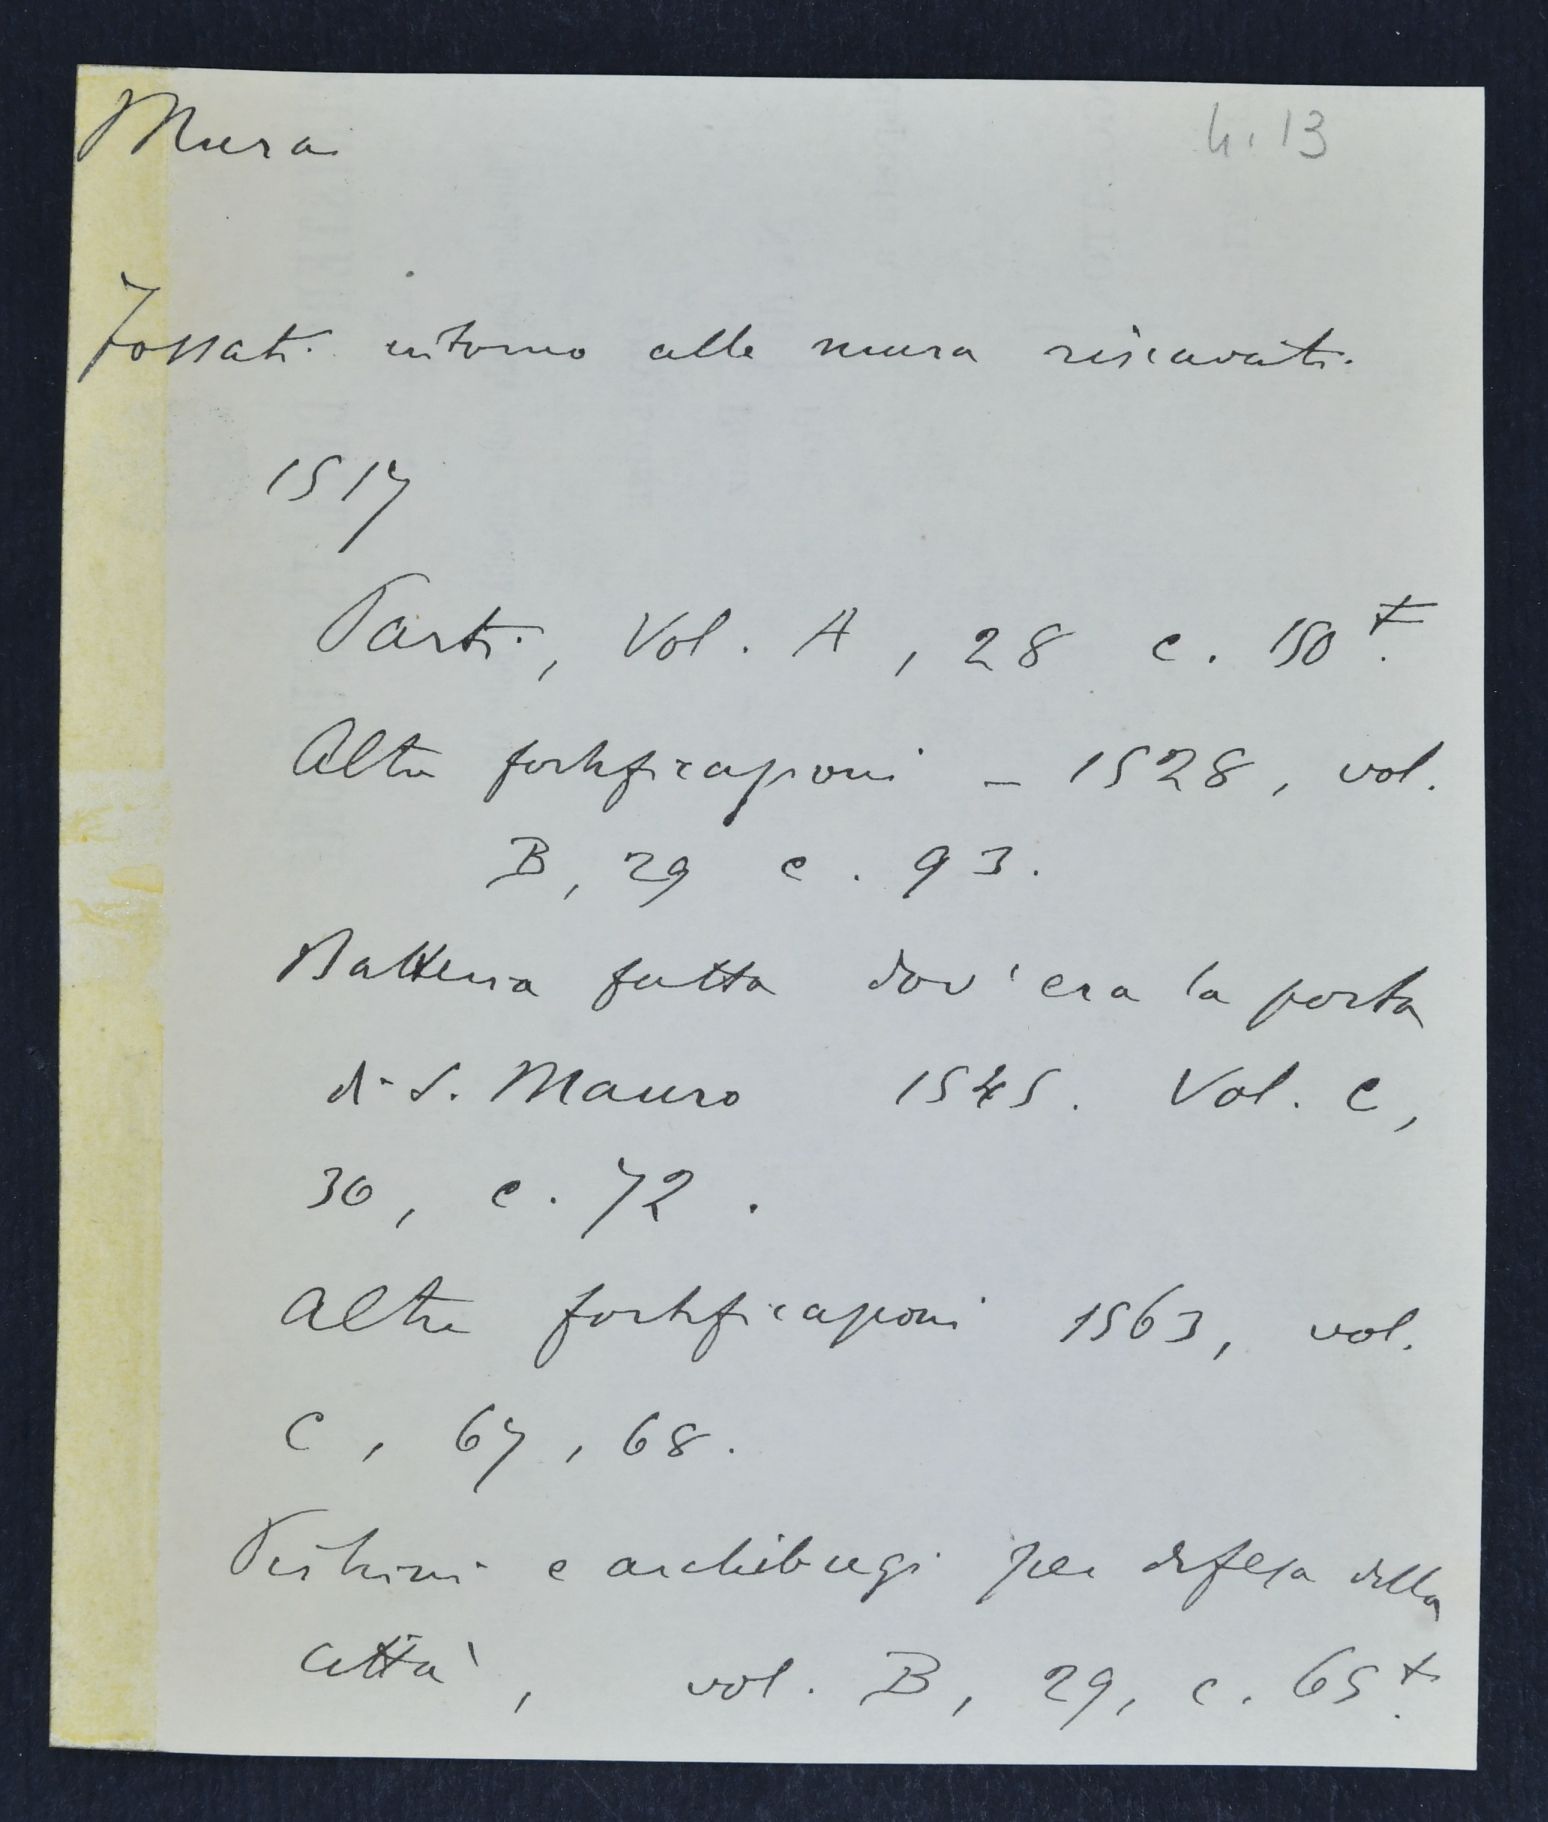 Mura
4.13
Fossati intorno alle mura riscavati
1517
Parti, Vol. A, 28 c. 150 t.
Altre fortificazioni – 1528, vol.
B, 29 c. 93.
Batteria fatta dov'era la porta
di S. Mauro 1545. Vol. C,
30, c. 72.
Altre fortificazioni 1563, vol.
C, 67, 68.
e archibugi per difesa della
città, vol. B, 29, c. 65 t.